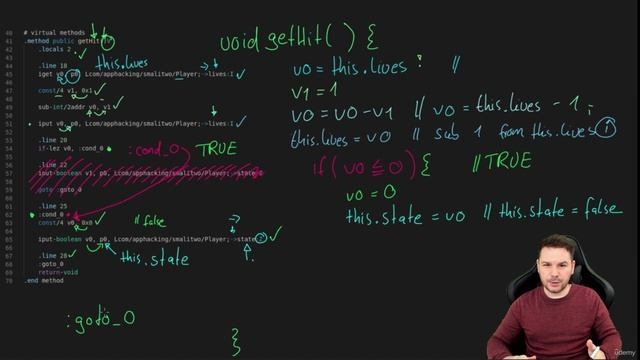 40 # virtual methods
41 .method public getHit()V
42 .locals 2
43
44 .line 18
45 iget v0, p0, Lcom/apphacking/smalitwo/Player;->lives:I
46
47 const/4 v1, 0x1
48
49 sub-int/2addr v0, v1
50
51 iput v0, p0, Lcom/apphacking/smalitwo/Player;->lives:I
52
53 .line 20
54 if-lez v0, :cond_0
55
56 .line 22
57 iput-boolean v1, p0, Lcom/apphacking/smalitwo/Player;->state
58
59 goto :goto_0
60
61 .line 25
62 :cond_0
63 const/4 v0, 0x0
64
65 iput-boolean v0, p0, Lcom/apphacking/smalitwo/Player;->state:Z
66
67 .line 28
68 :goto_0
69 return-void
70 .end method
this.lives
:cond_0
TRUE
// false
this.state
:goto_0
void getHit( ) {
v0 = this.lives ; //
v1 = 1
v0 = v0 - v1 // v0 = this.lives - 1 ;
this.lives = v0 // sub 1 from this.lives
if ( v0 ≤ 0 ) { // TRUE
v0 = 0
this.state = v0 // this.state = false
}
udemy